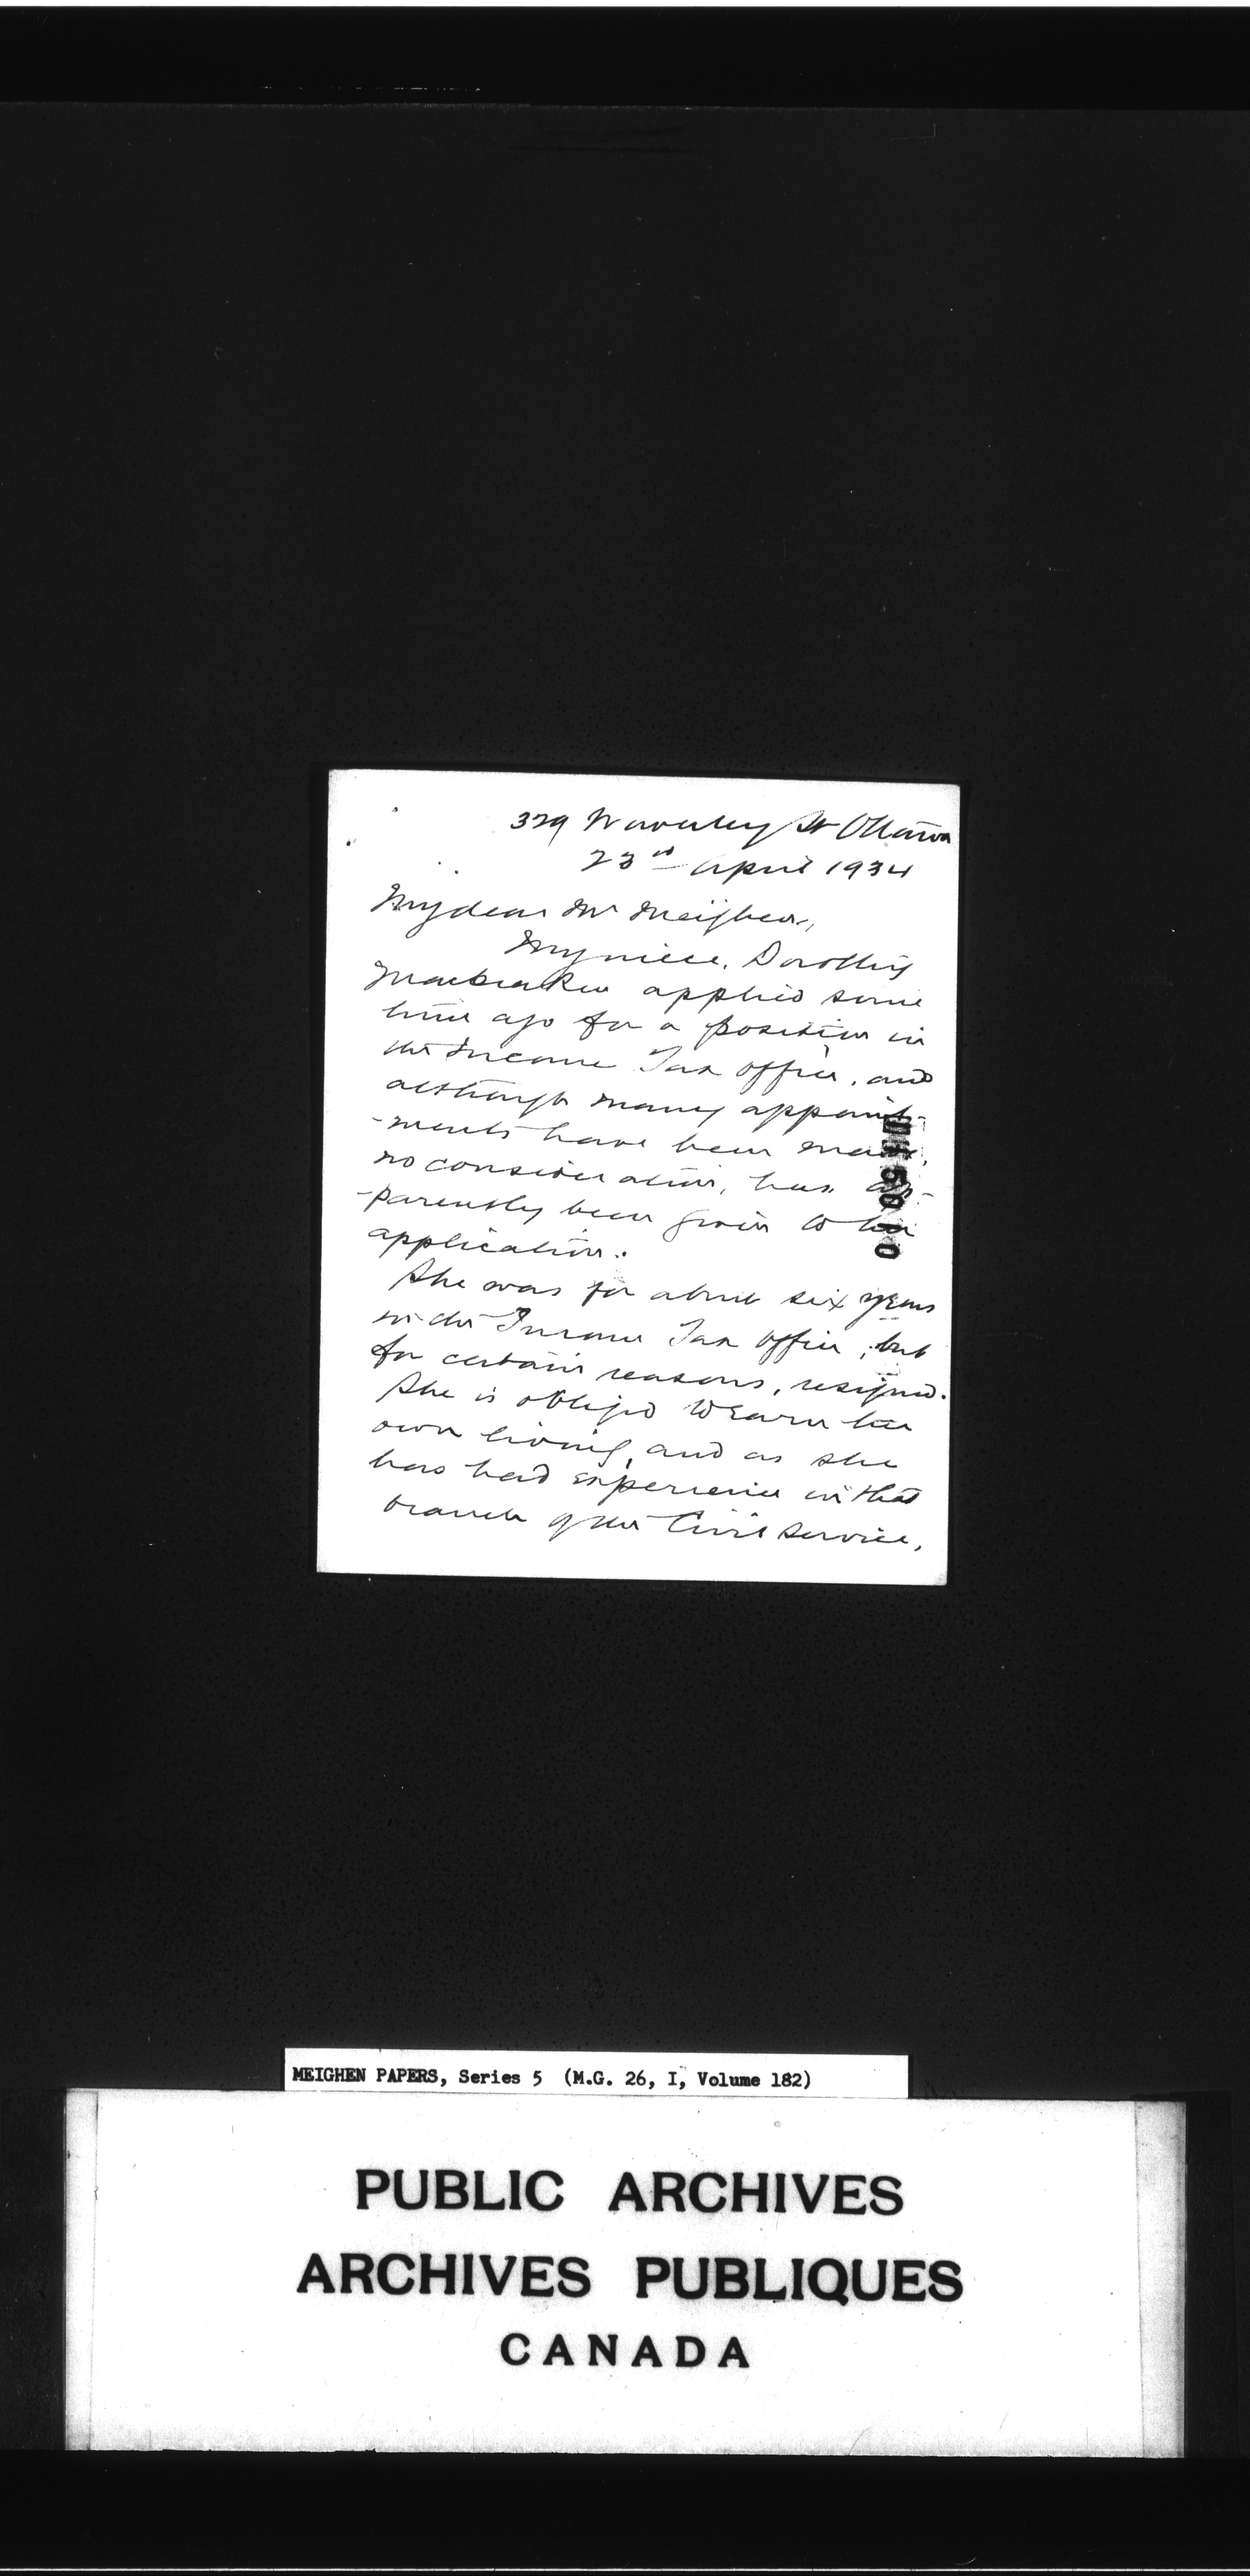 329 Waverley St Ottawa
23rd April 1934
My dear Mr Meighen,
My niece, Dorothy
applied some
time ago for a position in
the Income Tax office, and
although many appoint-
-ments have been made,
no consideration, has ap-
-parently been given to her
application.
She was for about six years
in the Income Tax office, but
for certain reasons, resigned.
She is obliged to earn her
own living, and as she
has had experience in that
branch of the Civil Service,
MEIGHEN PAPERS, Series 5 (M.G. 26, I, Volume 182)
PUBLIC ARCHIVES
ARCHIVES PUBLIQUES
CANADA